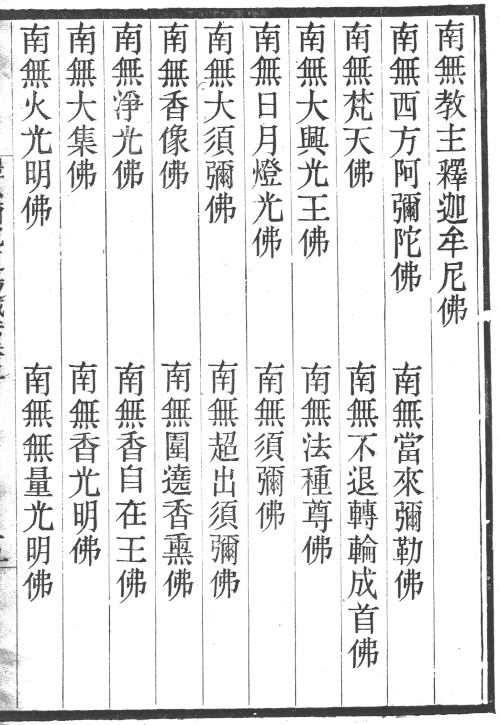 南無教主釋迦牟尼佛
南無西方阿彌陀佛
南無當來彌勒佛
南無梵天佛
南無不退轉輪成首佛
南無大興光王佛
南無法種尊佛
南無日月燈光佛
南無須彌佛
南無大須彌佛
南無超出須彌佛
南無香像佛
南無圍遶香熏佛
南無淨光佛
南無香自在王佛
南無大集佛
南無香光明佛
南無火光明佛
南無無量光明佛